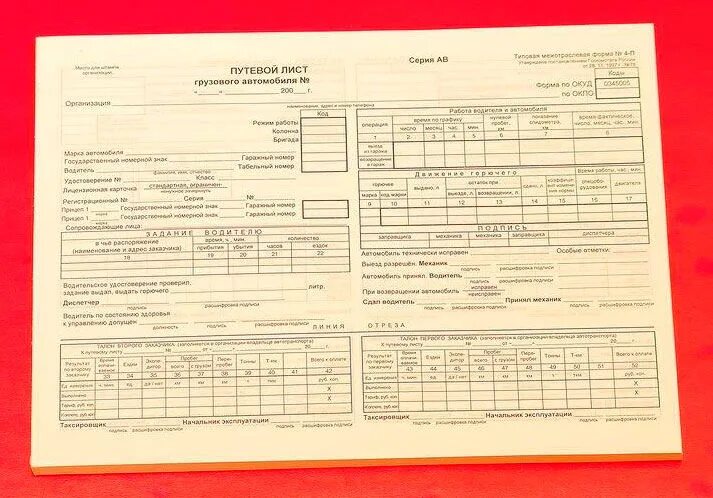 Место для штампа
организации
ПУТЕВОЙ ЛИСТ
грузового автомобиля №
Серия АВ
Типовая межотраслевая форма № 4-П
Утверждена постановлением Госкомстата России
от 28. 11. 1997 г. №78
Коды
Форма по ОКУД 0345005
по ОКПО
« » 200 г.
Организация
наименование, адрес и номер телефона
Код
Режим работы
Колонна
Бригада
Марка автомобиля
Государственный номерной знак Гаражный номер
Водитель Табельный номер
фамилия, имя, отчество
Удостоверение № Класс
Лицензионная карточка стандартная, ограничен-
ненужное зачеркнуть
Регистрационный № Серия №
Прицеп 1 Государственный номерной знак Гаражный номер
марка
Прицеп 1 Государственный номерной знак Гаражный номер
марка
Сопровождающие лица:
Работа водителя и автомобиля
операция время по графику нулевой пробег, км показание спидометра, км время фактическое, число, месяц, час., мин.
число месяц час. мин.
1 2 3 4 5 6 7 8
выезд из гаража
возвращение в гараж
Движение горючего Время работы, час., мин.
горючее выдано, л остаток при сдано, л коэффициент изменения нормы спецоборудования двигателя
марка код марки выезде, л возвращении, л
9 10 11 12 13 14 15 16 17
ПОДПИСЬ
заправщика механика механика заправщика диспетчера
ЗАДАНИЕ ВОДИТЕЛЮ
в чьё распоряжение (наименование и адрес заказчика) время, ч., мин. количество
прибытия убытия часов ездок
18 19 20 21 22
Автомобиль технически исправен Особые отметки:
Выезд разрешён. Механик
подпись расшифровка подписи
Автомобиль принял. Водитель
подпись расшифровка подписи
При возвращении автомобиль исправен
неисправен
Сдал водитель Принял механик
подпись расшифровка подписи подпись расшифровка подписи
Водительское удостоверение проверил,
задание выдал, выдать горючего литр.
Диспетчер
подпись расшифровка подписи
Водитель по состоянию здоровья
к управлению допущен
должность подпись расшифровка подписи
ЛИНИЯ ОТРЕЗА
ТАЛОН ВТОРОГО ЗАКАЗЧИКА (заполняется в организации-владельце автотранспорта)
К путевому листу № от « » 20 г.
Результат по второму заказчику Время оплачиваемое Ездки Экспедитор Пробег Перепробег Тонны Т-км Всего к оплате
всего с грузом
33 34 35 36 37 38 39 40 41 42
Ед. измерения ч. мин. ед. да / нет км км км т т.км руб. коп.
Выполнено X
Тариф, руб. коп. X
К оплате, руб. коп.
Таксировщик Начальник эксплуатации
подпись расшифровка подписи подпись расшифровка подписи
ТАЛОН ПЕРВОГО ЗАКАЗЧИКА (заполняется в организации-владельце автотранспорта)
К путевому листу № от « » 20 г.
Результат по первому заказчику Время оплачиваемое Ездки Экспедитор Пробег Перепробег Тонны Т-км Всего к оплате
всего с грузом
43 44 45 46 47 48 49 50 51 52
Ед. измерения ч. мин. ед. да / нет км км км т т.км руб. коп.
Выполнено X
Тариф, руб. коп. X
К оплате, руб. коп.
Таксировщик Начальник эксплуатации
подпись расшифровка подписи подпись расшифровка подписи